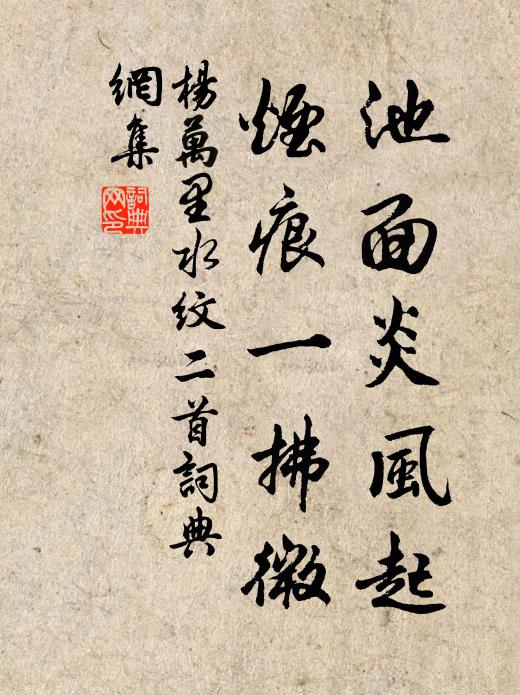 池面炎風起
煙痕一拂微
楊萬里水紋二首詞典
網集
詞典
网印